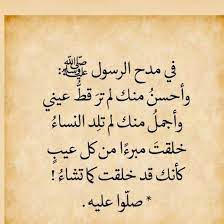 في مدح الرسول ﷺ:
وأحسنُ منك لم ترَ قطُّ عيني
وأجملُ منك لم تلِد النساءُ
خلقتَ مبرءًا من كل عيبٍ
كأنك قد خلقت كما تشاءُ !
* صلّوا عليه .